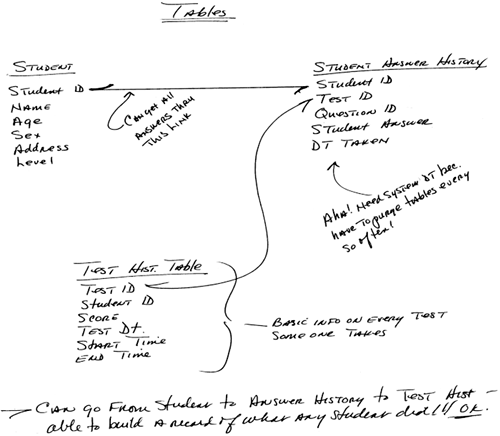 TABLES
STUDENT
STUDENT ID
NAME
Age
Sex
Address
Level
Can get All
Answers Thru
This Link
STUDENT ANSWER HISTORY
STUDENT ID
TEST ID
QUESTION ID
STUDENT ANSWER
DT TAKEN
Aha! Need System DT bec.
have to purge tables every
so often!
TEST HIST. TABLE
TEST ID
STUDENT ID
SCORE
TEST DT.
START TIME
END TIME
BASIC INFO ON EVERY TEST
SOMEONE TAKES
CAN go FROM STUDENT to ANSWER HISTORY to TEST HIST -
able to build A RECORD of WHAT ANY STUDENT did !!! OK.